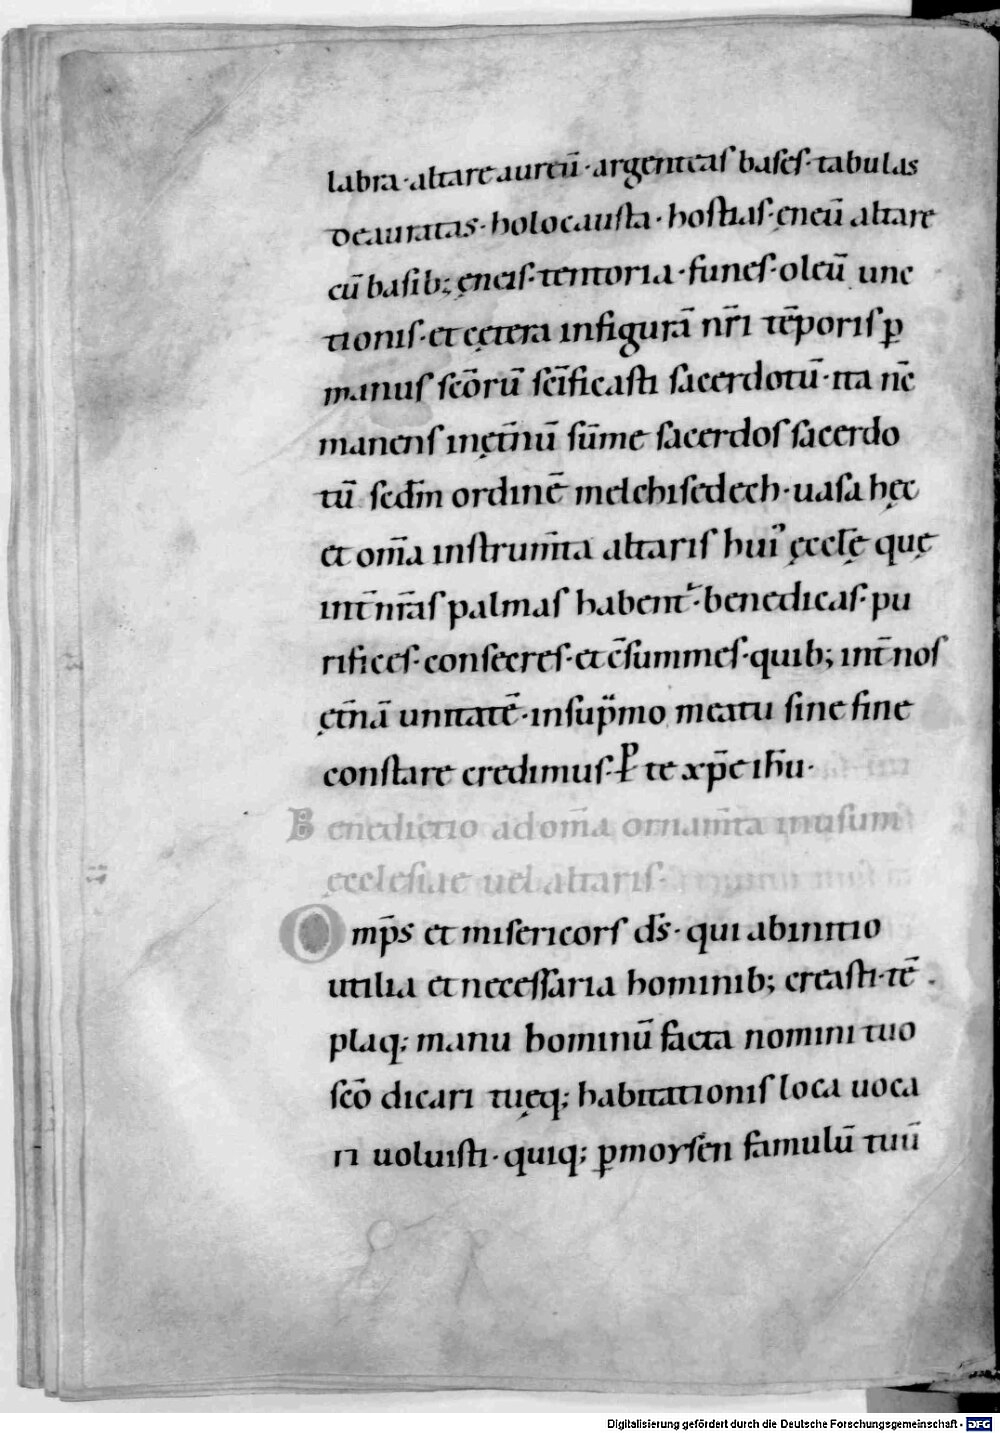 labra·altare aureū·argenteas bases·tabulas
deauratas·holocausta·hostias·ęneū altare
cū basib; ęneis·tentoria·funes·oleū unc
tionis·et cętera infigurā nr̄i tēporis ꝑ
manus scōrū scīficasti sacerdotū·ita nc̄
manens inęt̄nū sūme sacerdos sacerdo
tū sedm̄ ordinē melchisedech·uasa hęc
et om̄a instrum̄ta altaris hui᾽ ęccl̄ę quę
int̄ nr̄as palmas habent᷑·benedicas·pu
rifices·consecres·et c̄summes·quib; int̄ nos
ęt̄nā unitatē·insup̄mo meatu sine fine
constare credimus·P̱ te xp̄e ih̄u·
Benedictio adom̄a ornam̄ta inusum
ęcclesiae uel altaris·
Omp̄s et misericors ds̄·qui abinitio
utilia et necessaria hominib; creasti·tē
plaq; manu hominū facta nomini tuo
scō dicari tuęq; habitationis loca uoca
ri uoluisti·quiq; ꝑmoysen famulū tuū
Digitalisierung gefördert durch die Deutsche Forschungsgemeinschaft - DFG